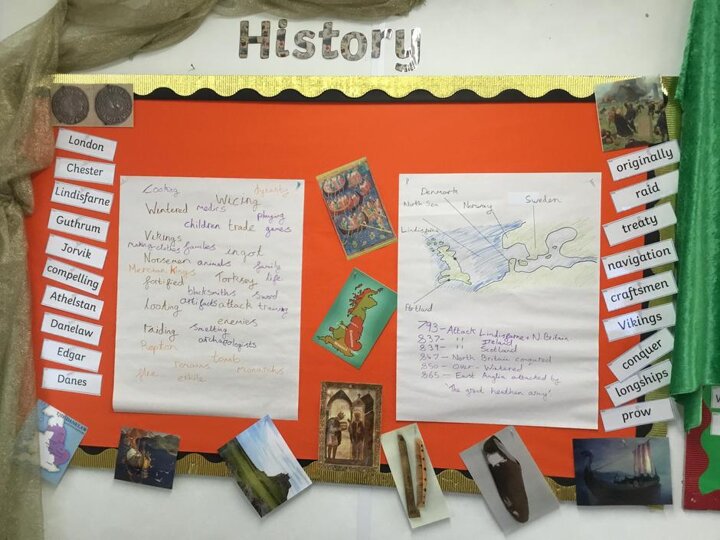 History
London
Chester
Lindisfarne
Guthrum
Jorvik
compelling
Athelstan
Danelaw
Edgar
Danes
Looking dynasty
Wintered medics playing
children trade games
Vikings
making clothes families ingot
Norsemen animals family
Mercian Kings Torksey life
fortified
blacksmiths sword
Looting artifacts attack training
enemies
raiding smelting
Repton archaeologists
tomb
remains monarchs
exile
Denmark
North Sea Norway Sweden
Lindisfarne
Portland
793- Attack Lindisfarne + N. Britain
837- " Ireland
839- " Scotland
847- North Britain conqured
850- Over-Wintered
865- East Anglia attacked by
'The great heathen army'
originally
raid
treaty
navigation
craftsmen
Vikings
conquer
longships
prow